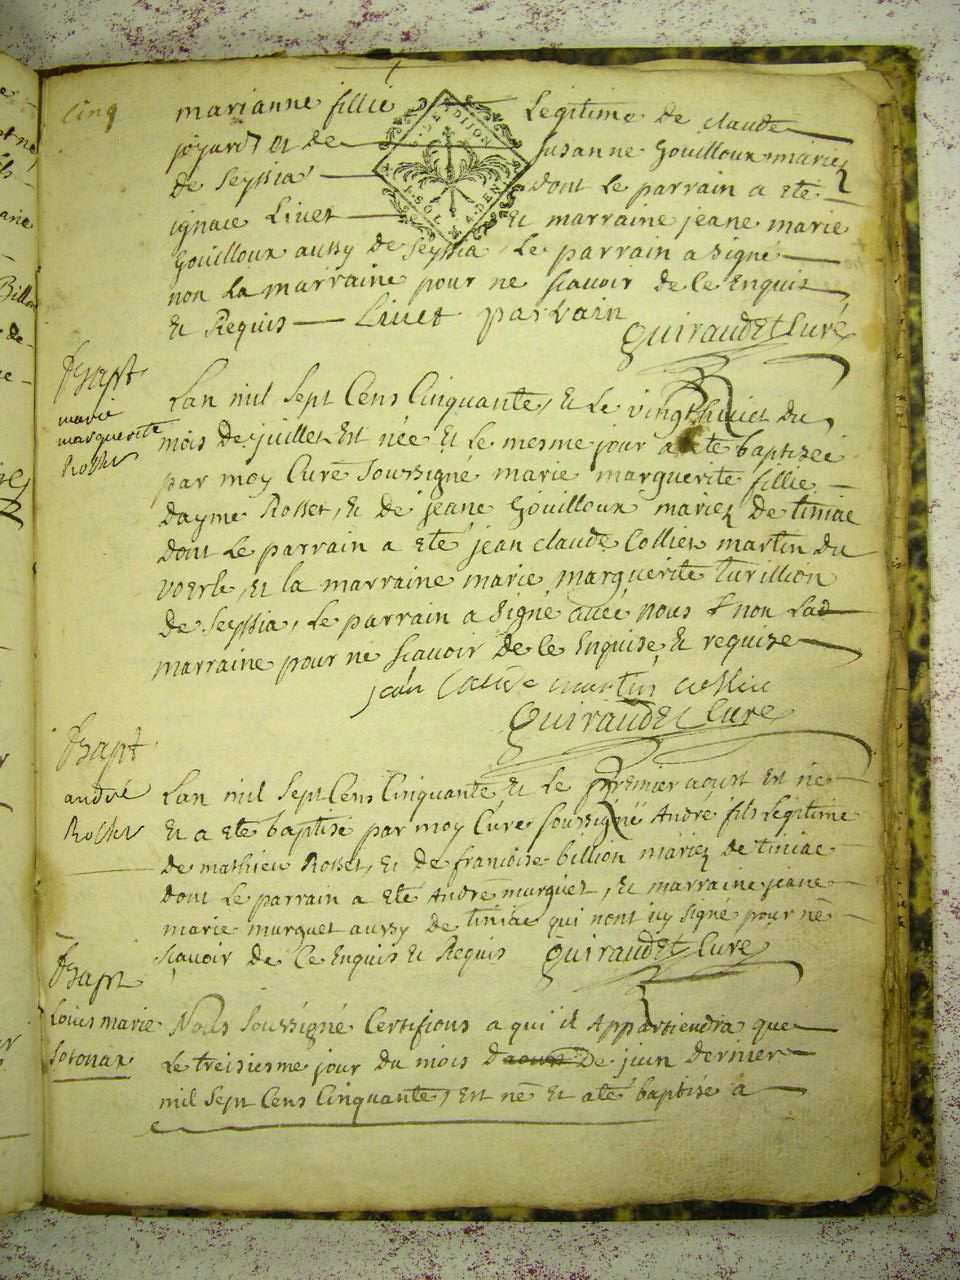 Cinq
marianne fillie Legitime de claude
joyard et de Susanne Gouilloux mariez
de Seyssia dont Le parrain a eté
ignace Livet Et marraine jeane marie
Gouilloux aussy de Seyssia, Le parrain a signé
non La marraine pour ne scavoir de ce Enquis
Et Requis Livet parrain
Guiraudet Curé
Bapt
marie
marguerite
Rosset
Lan mil Sept Cens Cinquante, Et Le vingthuict du
mois de juillet Est née Et Le mesme jour a ete baptisee
par moy Curé Soussigné marie marguerite fillie
dayme Rosset, Et de jeane Gouilloux mariez de tiniac
dont Le parrain a eté jean claude Collier martin du
voerle, Et la marraine marie marguerite turillion
de Seyssia, Le parrain a signé avec nous & non Lad
marraine pour ne scavoir de ce Enquise Et requise
jean Claude martin
Guiraudet Curé
Bapt
andré
Rosset
Lan mil Sept Cens Cinquante Et Le premier aoust Est né
Et a eté baptisé par moy Curé soussigné André fils Legitime
de mathieu Rosset, Et de francoise billion mariez de tiniac
dont Le parrain a eté Andre murguet, Et marraine jeane
marie murguet aussy de tiniac qui nont icy signé pour ne
scavoir de Ce Enquis Et Requis Guiraudet Curé
Bapt
Louis marie
Sotonax
Nous Soussigné Certifions a qui il Appartiendra que
Le treisiesme jour du mois daoust de juin dernier
mil Sept Cens Cinquante, Est né Et a eté baptisé a